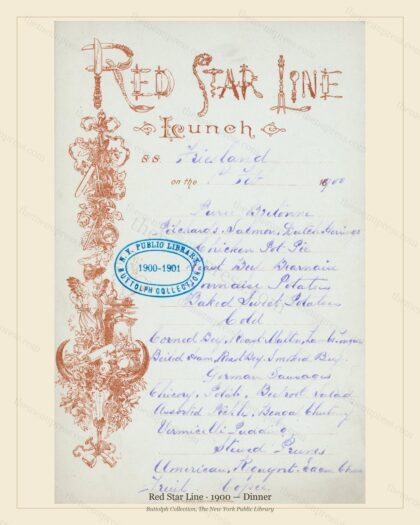 RED STAR LINE
Lunch
S.S. Friesland
on the 1st Feb 1900
Puree Bretonne
Pilchards, Salmon, Dutch Herrings
Chicken Pot Pie
Roast Beef Bearnaise
Potatoes
Baked Sweet Potatoes
Cold
Corned Beef, Roast Mutton, Lamb
Boiled Ham, Roast Beef, Smoked Beef
German Sausages
Chicory, Potato, Beetroot salad
Assorted Pickles, Bengal Chutney
Vermicelli Pudding
Stewed Prunes
American, Roquefort, Edam Cheese
Fruit Coffee
N.Y. PUBLIC LIBRARY
1900-1901
BUTTOLPH COLLECTION
Red Star Line · 1900 — Dinner
Buttolph Collection, The New York Public Library
themenupress.com